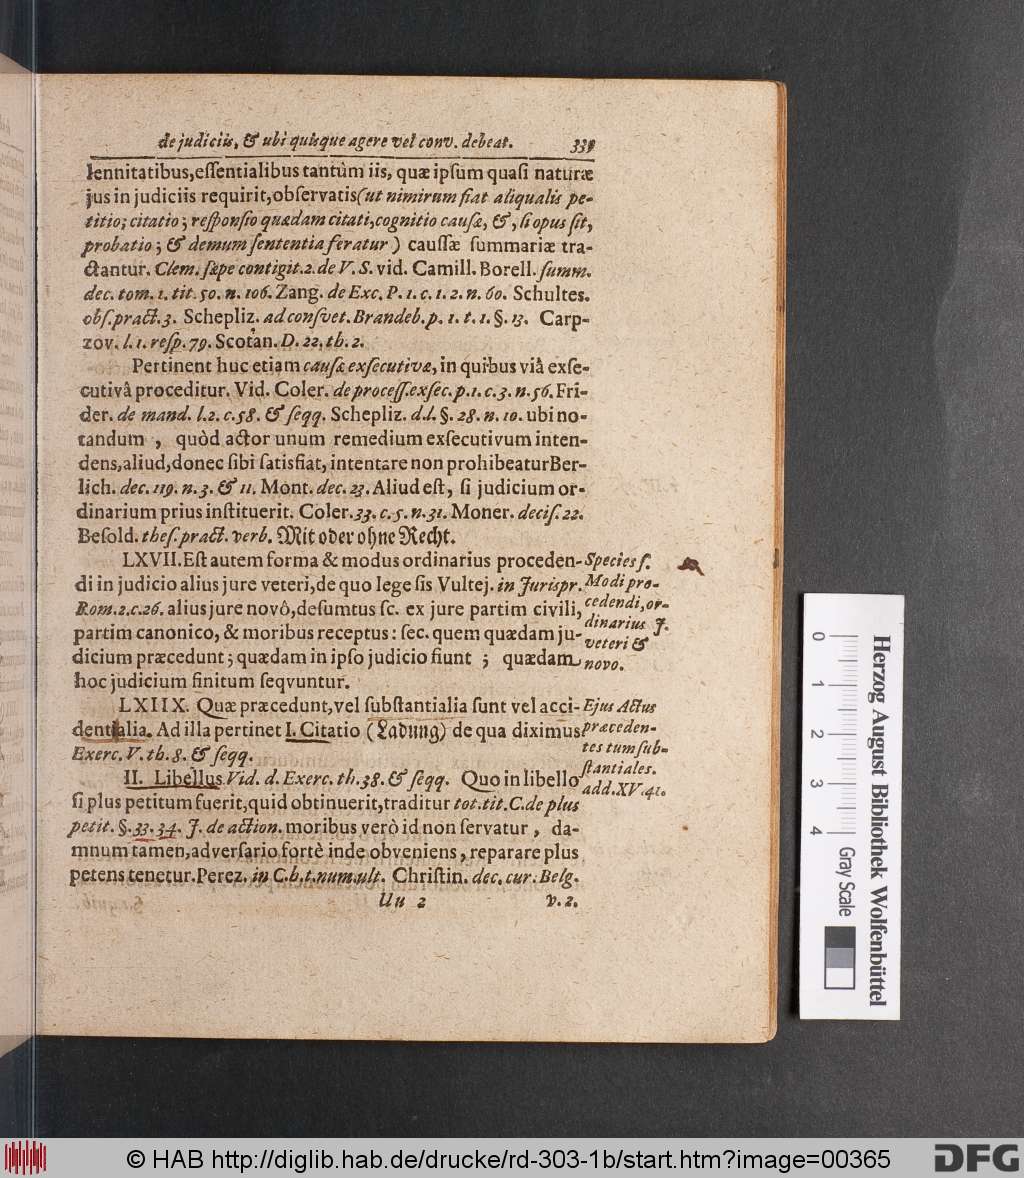 de judiciis, & ubi quisque agere vel conv. debeat. 339
lennitatibus,essentialibus tantùm iis, quæ ipsum quasi naturæ
jus in judiciis requirit,observatis(ut nimirum fiat aliqualis pe-
titio; citatio; responsio quædam citati,cognitio causæ, &, si opus sit,
probatio; & demum sententia feratur) caussæ summariæ tra-
ctantur. Clem. sæpe contigit.2.de V. S. vid. Camill. Borell. summ.
dec. tom. 1. tit. 50. n. 106. Zang. de Exc. P. 1. c. 1. 2. n. 60. Schultes.
obs.pract. 3. Schepliz. ad consvet. Brandeb. p. 1. t. 1. §. 13. Carp-
zov. l. 1. resp. 79. Scotan. D. 22. th. 2.
Pertinent huc etiam causæ exsecutivæ, in quibus viâ exse-
cutivâ proceditur. Vid. Coler. de process.exsec. p. 1. c. 3. n. 56. Fri-
der. de mand. l. 2. c. 58. & seqq. Schepliz. d. l. §. 28. n. 10. ubi no-
tandum , quòd actor unum remedium exsecutivum inten-
dens,aliud,donec sibi satisfiat, intentare non prohibeatur Ber-
lich. dec. 119. n. 3. & 11. Mont. dec. 23. Aliud est, si judicium or-
dinarium prius instituerit. Coler. 33. c. 5. n. 31. Moner. decis. 22.
Besold. thes. pract. verb. Mit oder ohne Recht.
LXVII. Est autem forma & modus ordinarius proceden-
di in judicio alius jure veteri,de quo lege sis Vultej. in Jurispr.
Rom. 2. c. 26. alius jure novô,desumtus sc. ex jure partim civili,
partim canonico, & moribus receptus: sec. quem quædam ju-
dicium præcedunt; quædam in ipso judicio fiunt ; quædam
hoc judicium finitum seqvuntur.
Species s.
Modi pro-
cedendi, or-
dinarius J.
veteri &
novo.
LXIIX. Quæ præcedunt,vel substantialia sunt vel acci-
dentialia. Ad illa pertinet I. Citatio (Ladung) de qua diximus
Exerc. V. th. 8. & seqq.
II. Libellus. Vid. d. Exerc. th. 38. & seqq. Quo in libello
si plus petitum fuerit,quid obtinuerit,traditur tot. tit. C. de plus
petit. §. 33. 34. J. de action. moribus verò id non servatur , da-
mnum tamen,adversario fortè inde obveniens, reparare plus
petens tenetur. Perez. in C. h. t. num. ult. Christin. dec. cur. Belg.
Ejus Actus
præceden-
tes tum sub-
stantiales.
add. XV. 41.
Uu 2 v. 2.
0 1 2 3 4
Gray Scale
Herzog August Bibliothek Wolfenbüttel
© HAB http://diglib.hab.de/drucke/rd-303-1b/start.htm?image=00365
DFG